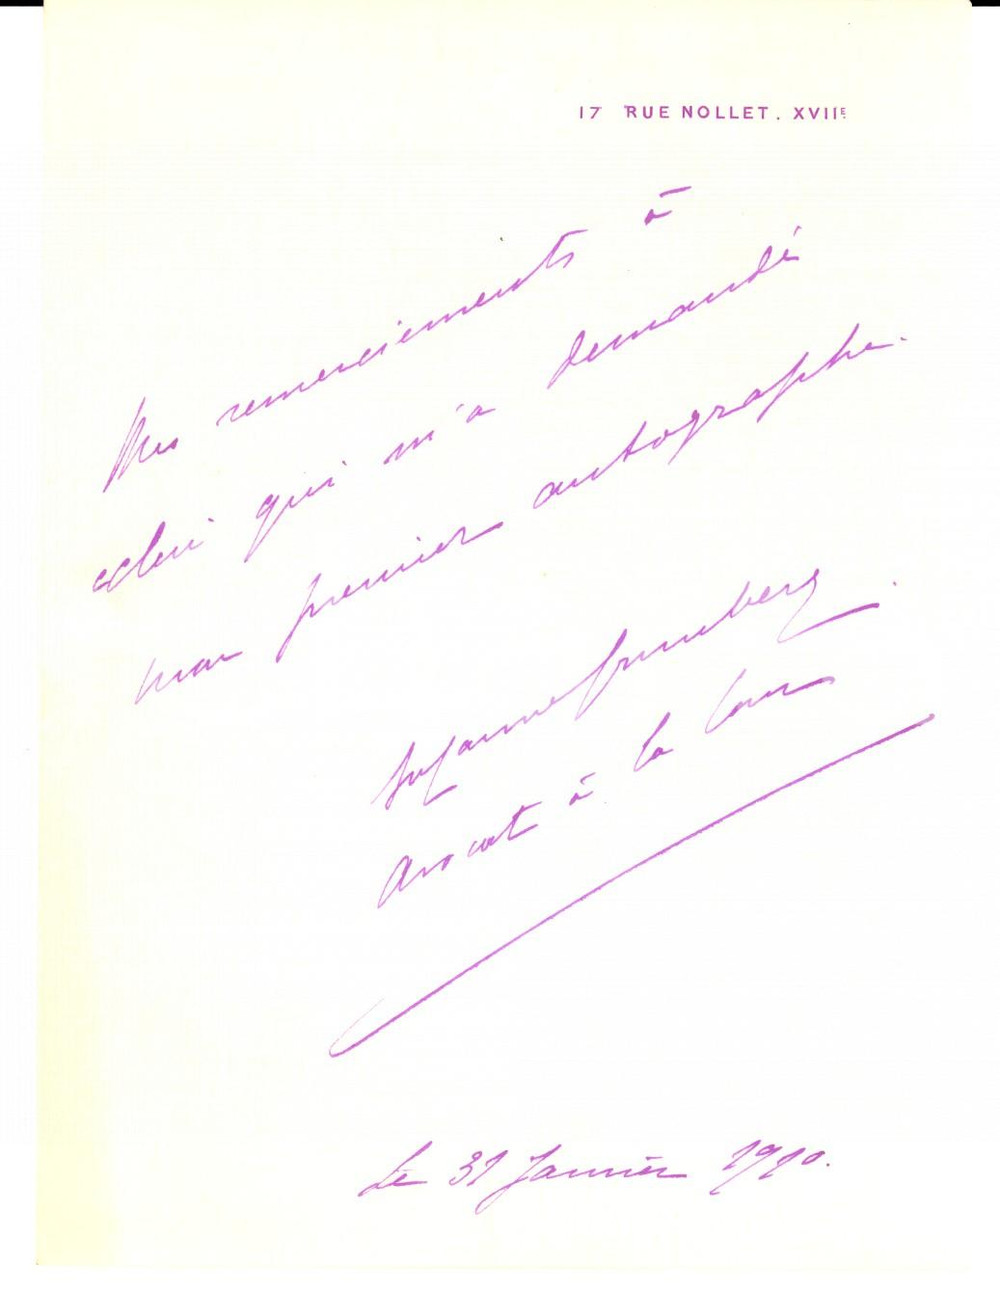 17 RUE NOLLET. XVIIE
Mes remerciements à
celui qui m'a demandé
mon premier autographe.
Suzanne Grunberg.
Avocat à la Cour
Le 31 Janvier 1910.